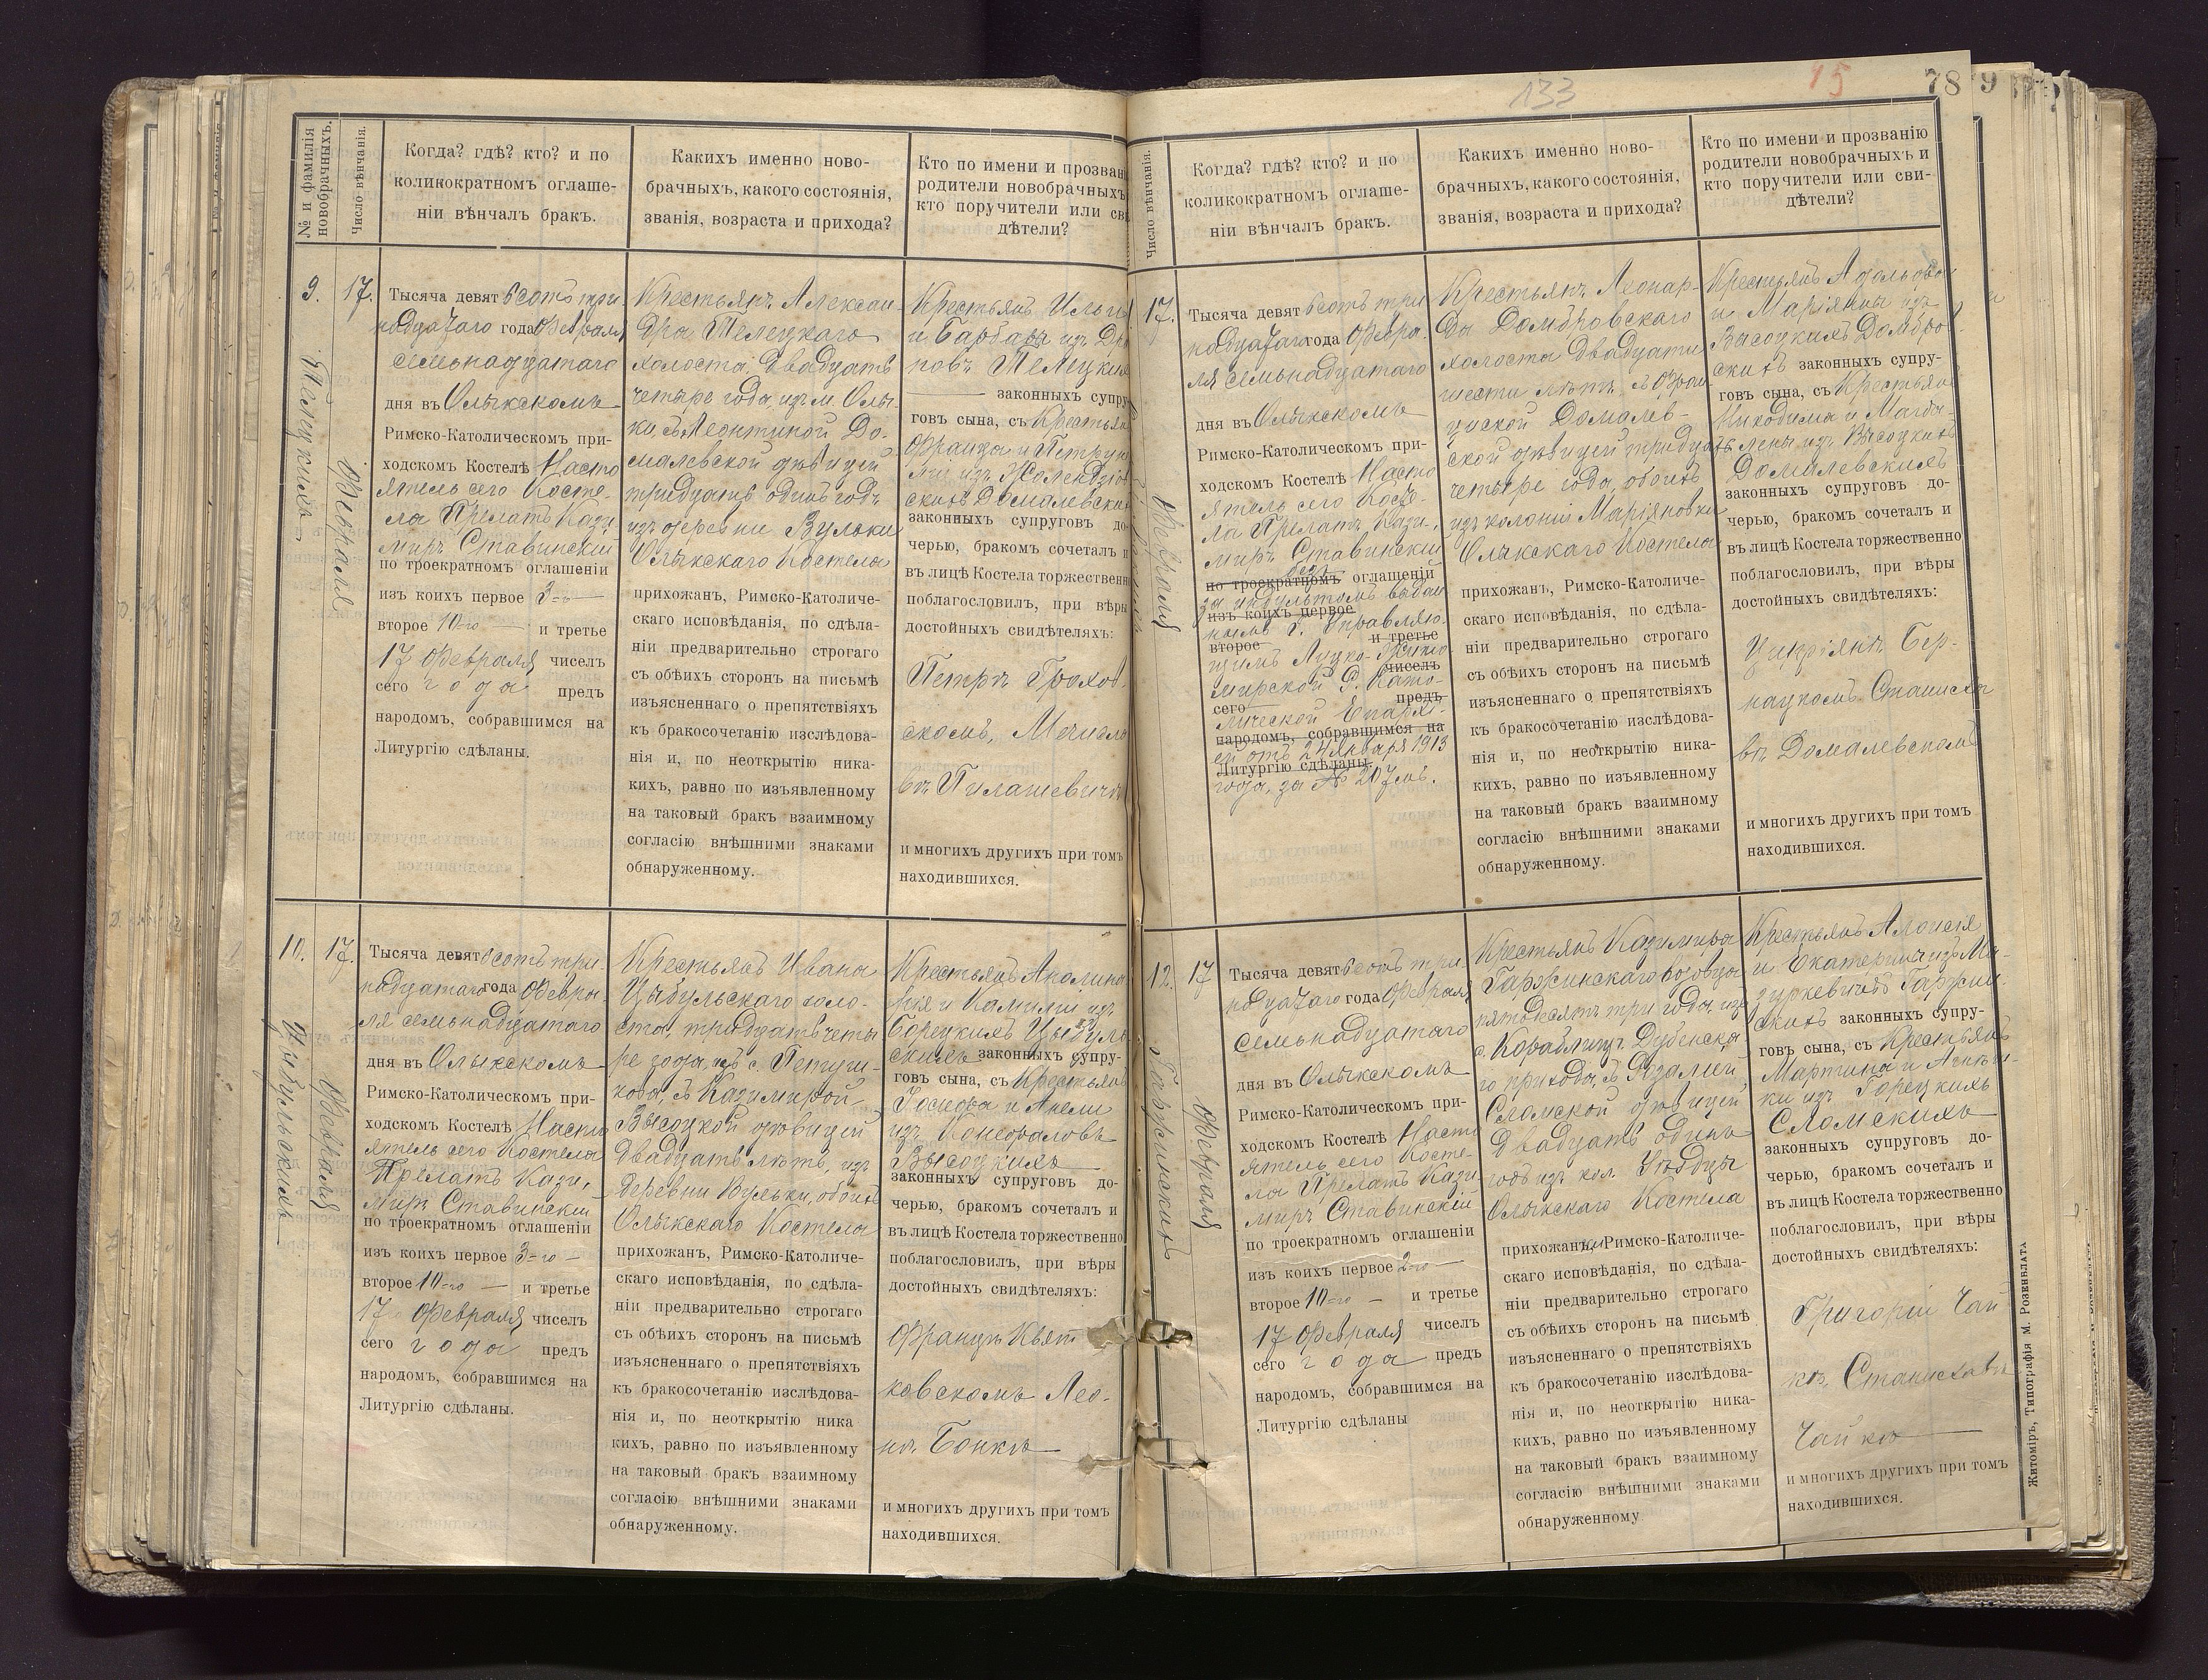 133
15
78
9
№ и фамилія новобрачныхъ.
Число вѣнчанія.
Когда? гдѣ? кто? и по
коликократномъ оглаше-
ніи вѣнчалъ бракъ.
Какихъ именно ново-
брачныхъ, какого состоянія,
званія, возраста и прихода?
Кто по имени и прозван
родители новобрачныхъ
кто поручители или сви
дѣтели?
9.
17.
Телецкихъ
Февраля
Тысяча девятьсотъ три
надцатаго года Февраля
семьнадцатаго
дня въ Олыкскомъ
Римско-Католическомъ при-
ходскомъ Костелѣ Насто
ятель сего Косте-
ла Прелатъ Кази-
миръ Ставинскій
по троекратномъ оглашеніи
изъ коихъ первое 3-го
второе 10-го и третье
17 Февраля чиселъ
сего года предъ
народомъ, собравшимся на
Литургію сдѣланы.
Крестьянъ Алексан-
дра Телецкаго
холоста, двадцать
четыре года, изъ м. Олы-
ки, съ Леонтиной До-
малевской дѣвицей
тридцать одинъ годъ
изъ деревни Вульки
Олыкскаго Костела
прихожанъ, Римско-Католиче-
скаго исповѣданія, по сдѣла-
ніи предварительно строгаго
съ обѣихъ сторонъ на письмѣ
изъясненнаго о препятствіяхъ
къ бракосочетанію изслѣдова-
нія и, по неоткрытію ника-
кихъ, равно по изъявленному
на таковый бракъ взаимному
согласію внѣшними знаками
обнаруженному.
Крестьянъ Ильи
и Барбары изъ
Телецких
законныхъ супру
говъ сына, съ Крестьян
Франца и
изъ
скихъ Домалевских
законныхъ супруговъ до
черью, бракомъ сочеталъ и
въ лицѣ Костела торжественн
поблагословилъ, при вѣры
достойныхъ свидѣтеляхъ:
Петрѣ Грохов-
скомъ, Мечисла
вѣ Пилашевичѣ
и многихъ другихъ при томъ
находившихся.
10.
17.
Цыбульскихъ
Февраля
Тысяча девятьсотъ три-
надцатаго года Февра-
ля семьнадцатаго
дня въ Олыкскомъ
Римско-Католическомъ при-
ходскомъ Костелѣ Насто
ятель сего Костела
Прелатъ Кази-
миръ Ставинскій
по троекратномъ оглашеніи
изъ коихъ первое 3-го
второе 10-го и третье
17 Февраля чиселъ
сего года предъ
народомъ, собравшимся на
Литургію сдѣланы.
Крестьянъ Ивана
Цыбульскаго холо-
ста, тридцать четы
ре года, изъ с.
съ Казимирой
Высоцкой дѣвицей
двадцать лѣтъ, изъ
деревни Вульки, обоихъ
Олыкскаго Костела
прихожанъ, Римско-Католиче-
скаго исповѣданія, по сдѣла-
ніи предварительно строгаго
съ обѣихъ сторонъ на письмѣ
изъясненнаго о препятствіяхъ
къ бракосочетанію изслѣдова-
нія и, по неоткрытію ника
кихъ, равно по изъявленному
на таковый бракъ взаимному
согласію внѣшними знаками
обнаруженному.
Крестьянъ Аполина
рія и Камилли изъ
Борецкихъ Цыбуль
скихъ законныхъ супру-
говъ сына, съ Крестьянъ
и Анели
изъ
Высоцкихъ
законныхъ супруговъ до-
черью, бракомъ сочеталъ и
въ лицѣ Костела торжественно
поблагословилъ, при вѣры
достойныхъ свидѣтеляхъ:
Францѣ Квят
ковскомъ Лео-
нѣ Бонкѣ
и многихъ другихъ при томъ
находившихся.
Число вѣнчанія.
Когда? гдѣ? кто? и по
коликократномъ оглаше-
ніи вѣнчалъ бракъ.
Какихъ именно ново-
брачныхъ, какого состоянія,
званія, возраста и прихода?
Кто по имени и прозванію
родители новобрачныхъ и
кто поручители или сви-
дѣтели?
17.
Февраля
Тысяча девятьсотъ три
надцатаго года Февра-
ля семьнадцатаго
дня въ Олыкскомъ
Римско-Католическомъ при-
ходскомъ Костелѣ Насто
ятель сего Косте-
ла Прелатъ Кази-
миръ Ставинскій
безъ
по троекратномъ оглашеній
за индультомъ выдан
изъ коихъ первое
нымъ Г. Управляю-
второе и третье
щимъ Луцко-Жито-
чиселъ
мирской Р. Като-
сего предъ
лической Епархі-
народомъ, собравшимся на
ей отъ 24 Января 1913
Литургію сдѣланы.
года, за № 207мъ.
Крестьянъ Леонар-
да Домбровскаго
холоста двадцати
шести лѣтъ, съ Фран
циской Домалев-
ской дѣвицей тридцать
четыре года, обоихъ
изъ колоніи Маріяновки
Олыкскаго Костела
прихожанъ, Римско-Католиче-
скаго исповѣданія, по сдѣла-
ніи предварительно строгаго
съ обѣихъ сторонъ на письмѣ
изъясненнаго о препятствіяхъ
къ бракосочетанію изслѣдова-
нія и, по неоткрытію ника-
кихъ, равно по изъявленному
на таковый бракъ взаимному
согласію внѣшними знаками
обнаруженному.
Крестьянъ Адольфа
и Маріянны изъ
Высоцкихъ Домбров-
скихъ законныхъ супру-
говъ сына, съ Крестьянъ
Никодима и Магда-
лены изъ Высоцкихъ
Домалевскихъ
законныхъ супруговъ до-
черью, бракомъ сочеталъ и
въ лицѣ Костела торжественно
поблагословилъ, при вѣры
достойныхъ свидѣтеляхъ:
Ципріянѣ Бер-
нацкомъ Станисла
вѣ Домалевскомъ
и многихъ другихъ при томъ
находившихся.
12.
17
Гаржинскихъ
Февраля
Тысяча девятьсотъ три
надцатаго года Февраля
семьнадцатаго
дня въ Олыкскомъ
Римско-Католическомъ при-
ходскомъ Костелѣ Насто
ятель сего Косте-
ла Прелатъ Кази
миръ Ставинскій
по троекратномъ оглашеніи
изъ коихъ первое 2-го
второе 10-го и третье
17 Февраля чиселъ
сего года предъ
народомъ, собравшимся на
Литургію сдѣланы
Крестьянъ Казимира
Гаржинскаго вдовца
пятьдесятъ три года, изъ
с. Кораблищъ Дубенска
го прихода, съ Розалией
Сломской дѣвицей
двадцать одинъ
годъ изъ кол.
Олыкскаго Костела
прихожанъ, Римско-Католиче-
скаго исповѣданія, по сдѣла-
ніи предварительно строгаго
съ обѣихъ сторонъ на письмѣ
изъясненнаго о препятствіяхъ
къ бракосочетанію изслѣдова-
нія и, по неоткрытію ника-
кихъ, равно по изъявленному
на таковый бракъ взаимному
согласію внѣшними знаками
обнаруженному
Крестьянъ Алоисія
и Екатерины изъ Ма-
зуркевичовъ Гаржин-
скихъ законныхъ супру-
говъ сына, съ Крестьянъ
Мартина и Агнѣш-
ки изъ Горецкихъ
Сломскихъ
законныхъ супруговъ до-
черью, бракомъ сочеталъ и
въ лицѣ Костела торжественно
поблагословилъ, при вѣры
достойныхъ свидѣтеляхъ:
Григоріи Чай
кѣ, Станиславѣ
Чайкѣ
и многихъ другихъ при томъ
находившихся.
Житоміръ, Типографія М. Розенблата